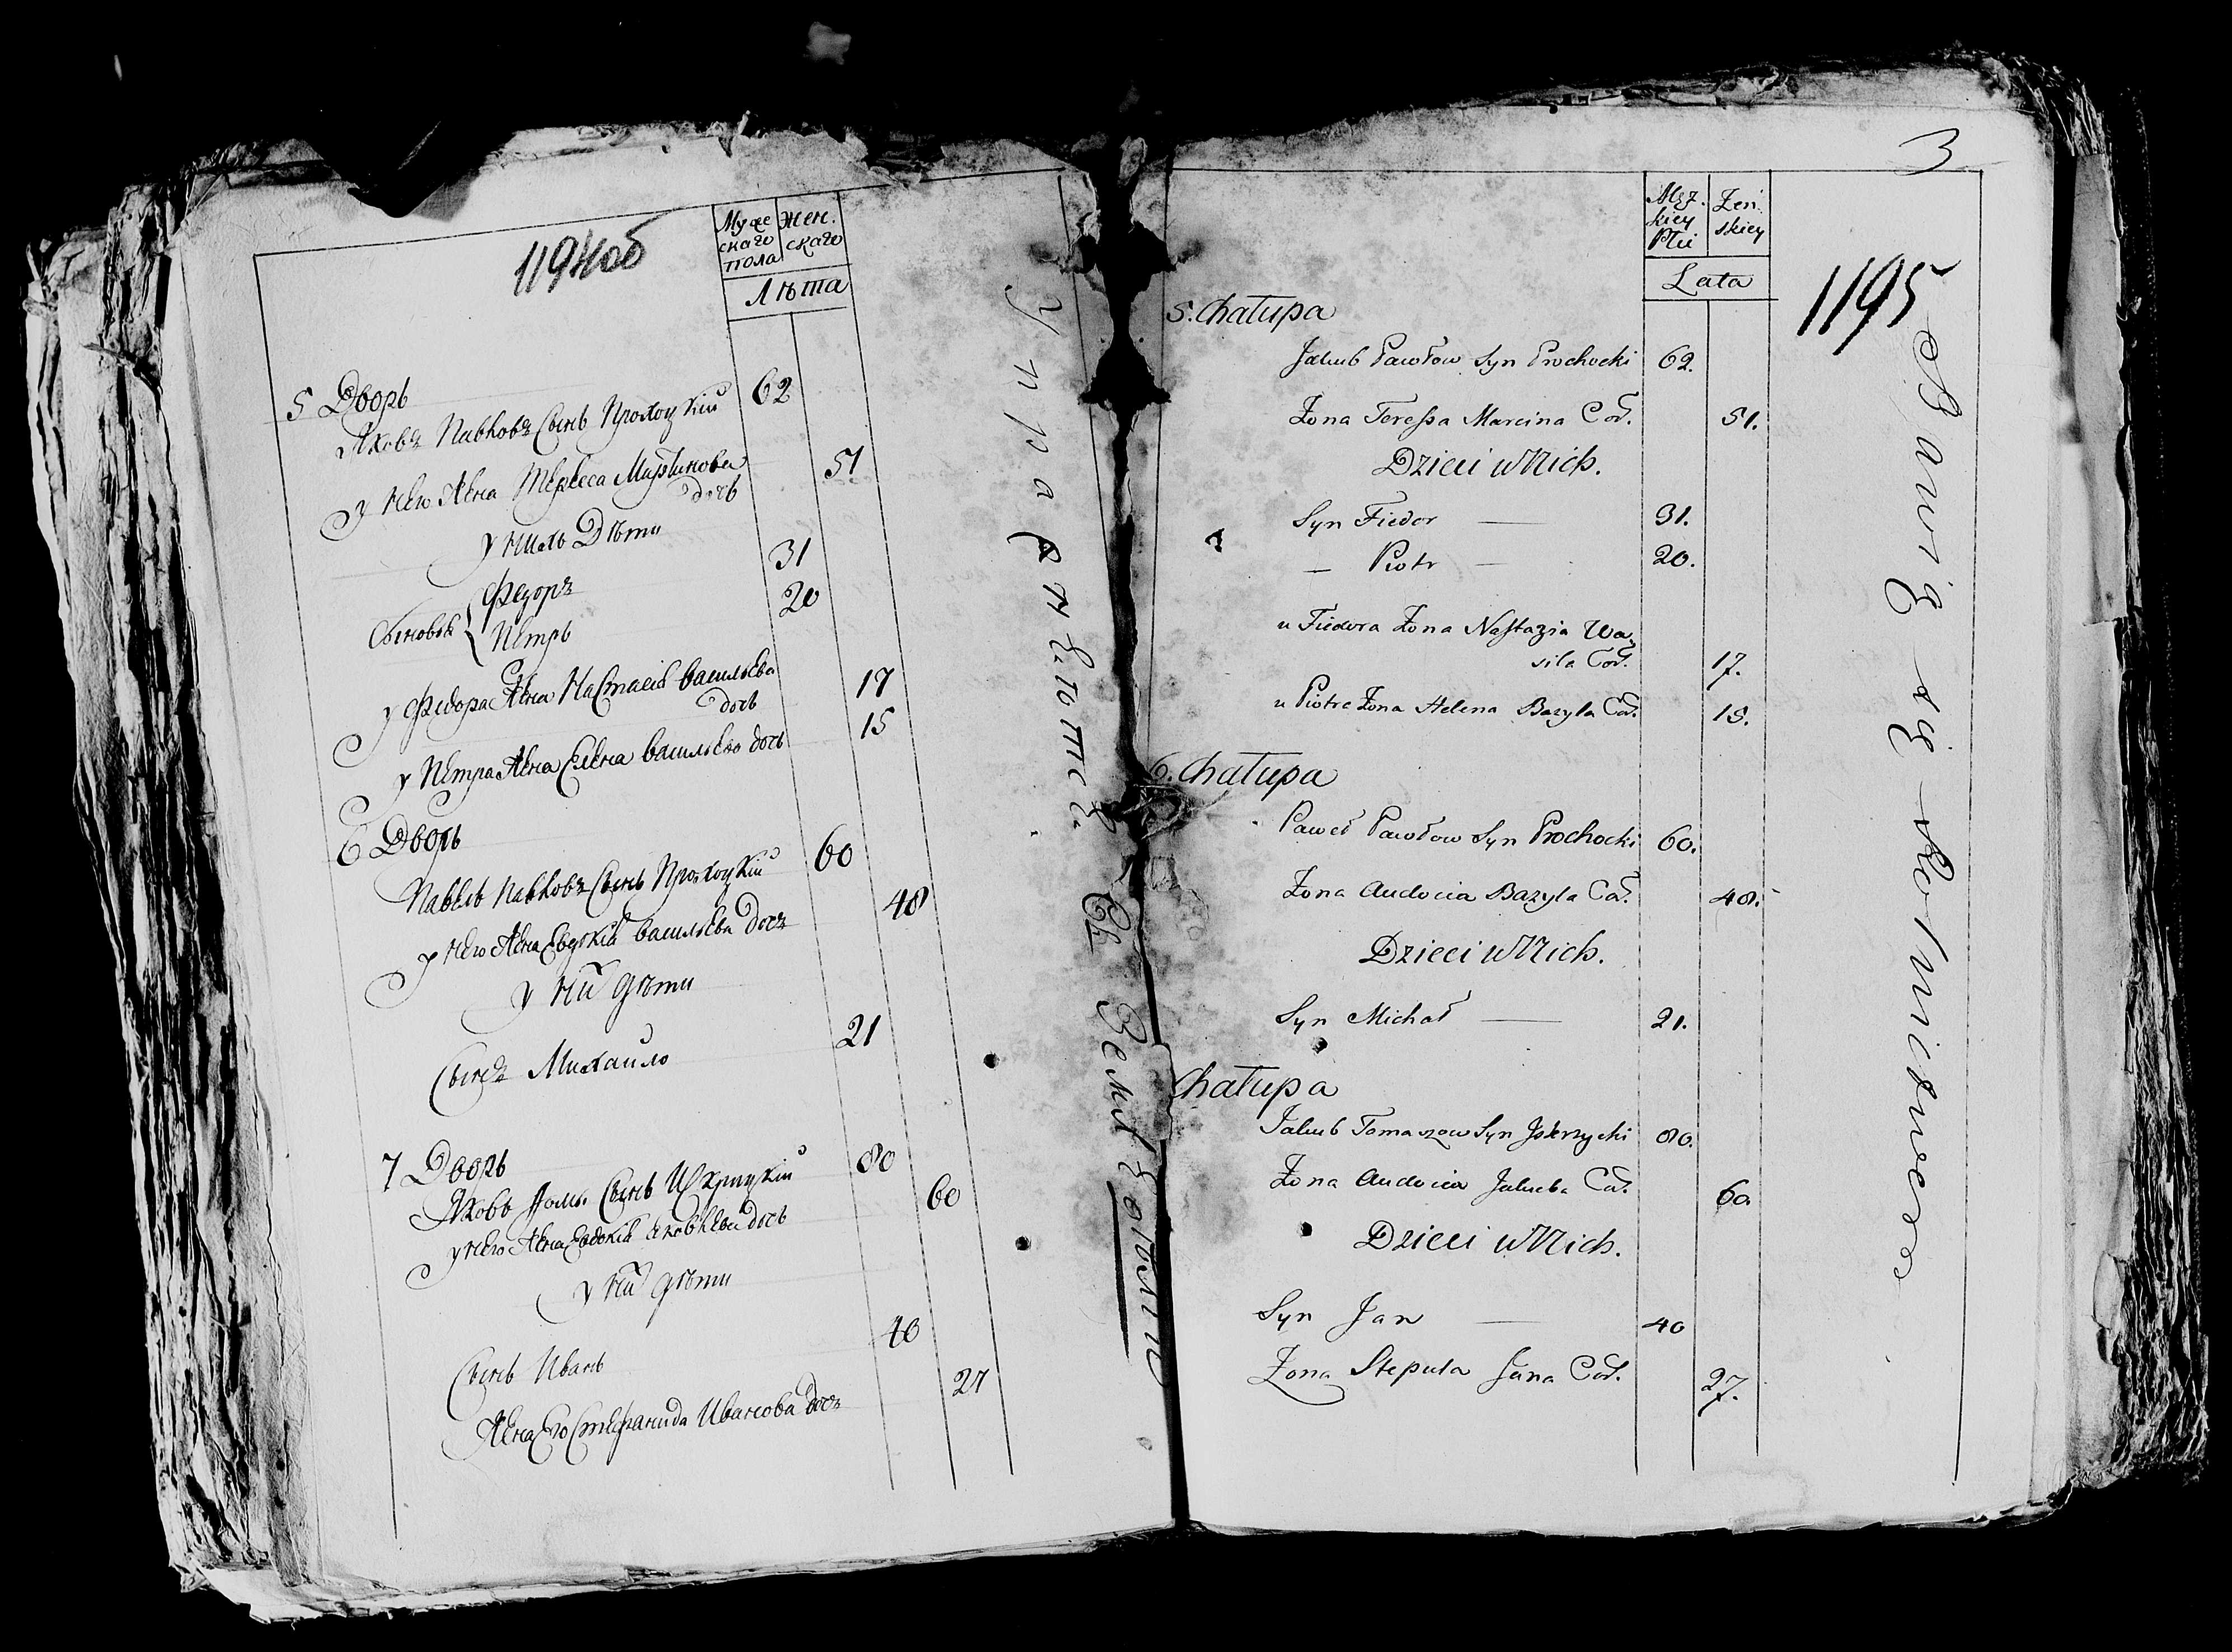 1194об
Муже
скаго
пола
Жен.
скаго
Лѣта
5 Дворь
Яковъ Павловъ Сынь Прохоцкій 62
у него Жена Тереса Мартинова
дочь 51
у нихь Дѣти
Сыновья { Федоръ 31
Петрь 20
у Федора Жена Настасія Васильева
дочь 17
у Петра Жена Елена Васильева дочь 15
6 Дворь
Павель Павловъ Сынь Прохоцкій 60
у него Жена Евдокія Васильева Дочъ 48
у ни дѣти
Сынъ Михайло 21
7 Дворь
Яковь Сынь 80
у него Жена Евдокія Яковлева дочь 60
у ни дѣти
Сынь Ивань 40
Жена Его Стефанида Иванова дочъ 27
Съ Земле
3
1195
Męz.
kiey
Płci
Żeń.
skiey
Lata
5. Chałupa
Jakub Pawłow Syn Prochocki 62.
Żona Teressa Marcina Cor. 51.
Dzieci u Nich.
Syn Fiedor — 31.
— Piotr — 20.
u Fiedora Żona Nastazia Wa
sila Cor. 17.
u Piotra Żona Helena Bazyla Cor. 15.
6. Chałupa
Paweł Pawłow Syn Prochocki 60.
Żona Audocia Bazyla Cor. 48.
Dzieci u Nich.
Syn Michał — 21.
Chałupa
Jakub Tomaszow Syn Iskrzycki 80.
Żona Audocia Jakuba Cor. 60
Dzieci u Nich.
Syn Jan — 40
Żona Stepula Jana Cor. 27.
Bawią się Rolnictwem